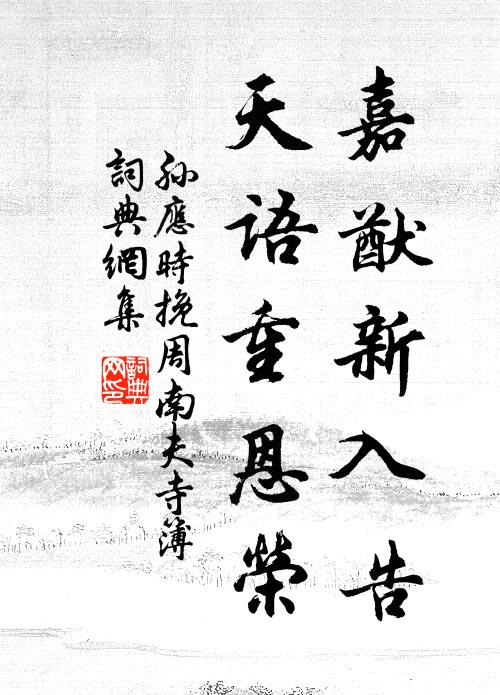 嘉猷新入告
天語重恩榮
孫應時挽周南夫寺簿
詞典網集
詞典網印